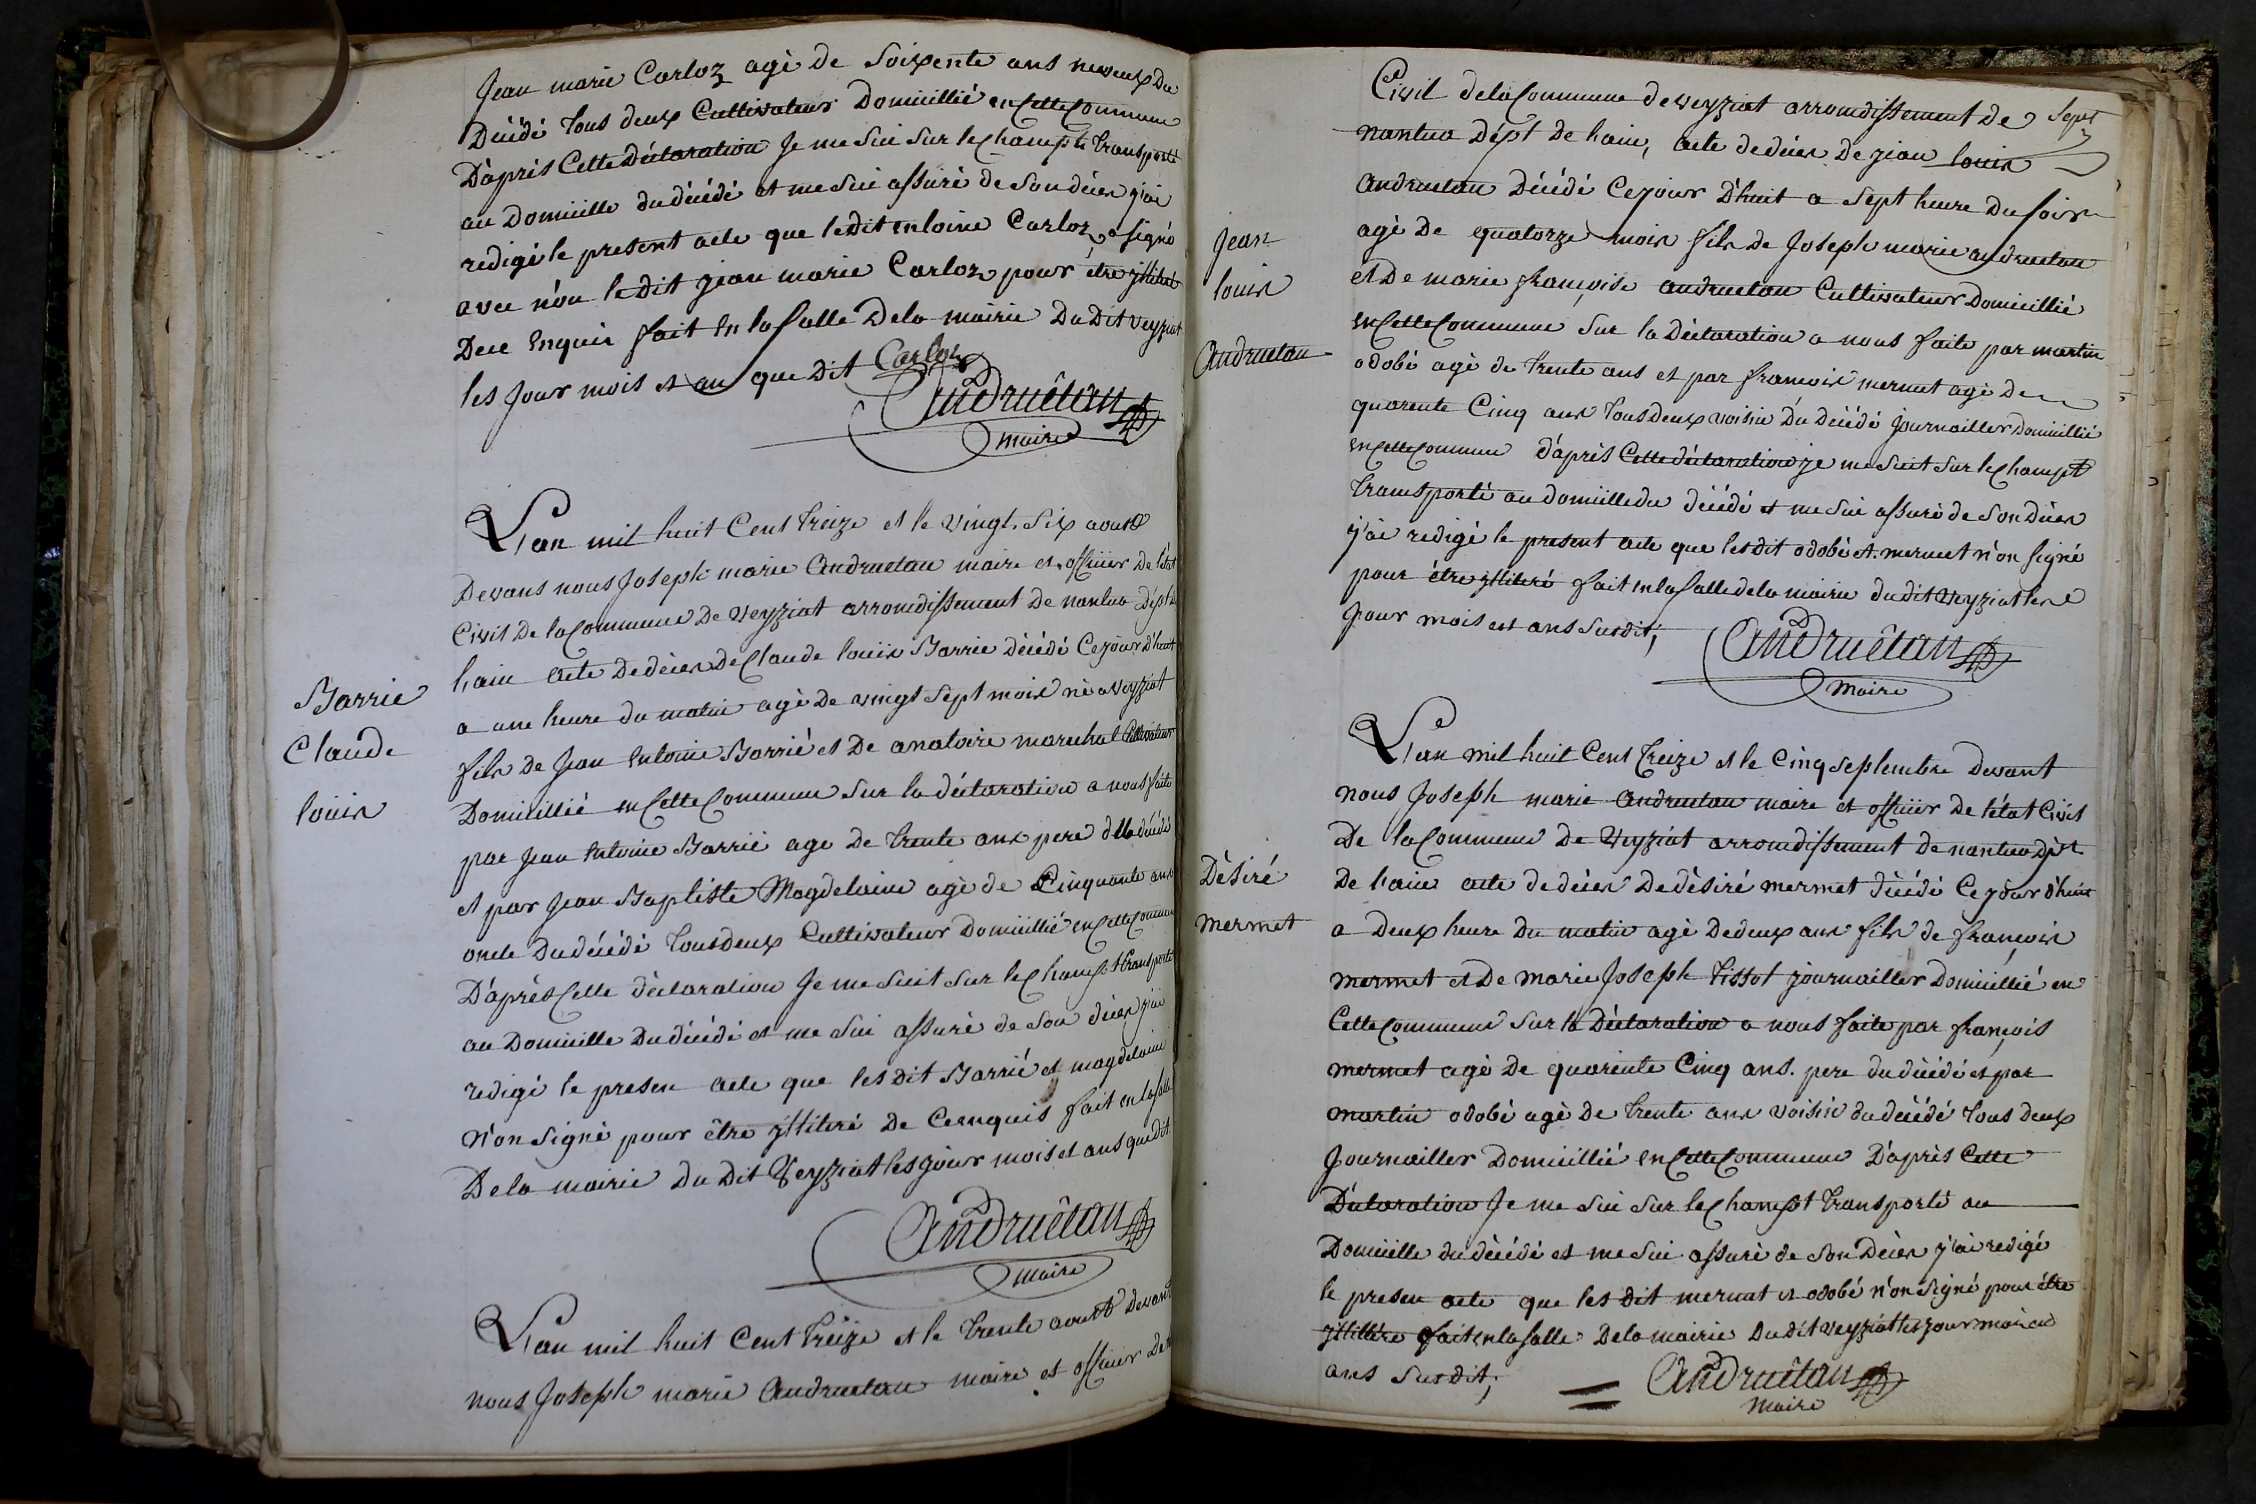 Jean marie Carloz agé de Soixente ans neveux Du
Décédé tous deux Cultivateur Domicillié en Cette Commune
D'après Cette Déclaration Je me Sui Sur le Champt transporté
au Domicille du décédé et me Sui assuré de Son décés j'ai
redigé le present acte que le dit entoine Carloz a Signé
avec nou le dit jean marie Carloz pour être yllitéré
De ce enquis fait en la Salle De la mairie Du Dit Veyziat
les Jour mois et an que Dit Carloz
Andruétan
maire
L'an mil huit Cent treize et le vingt-Six aoust
Devans nous Joseph marie Andruetan maire et officier De l'état
Civil De la Commune De Veyziat arrondissement De nantua Dépt de
l'ain acte De décés De Claude louis Barrie décédé Ce jour d'huit
a une heure du matin agé De vingt Sept mois né a Veyziat
fils de Jean entoine Barrié et De anatoire marechal Cultivateur
Domicillié en Cette Commune Sur la déclaration a nous faite
par Jean entoine Barrié age De trente ans pere du décédé
et par Jean Baptiste Magdelaine agé de Cinquante ans
oncle Du décédé tous deux Cultivateur Domicillié en Cette Commune
D'après Cette déclaration Je me Suit Sur le Champt transporté
au Domicille Du décédé et me Sui assuré de Son décés j'ai
redigé le presen acte que les dit Barrié et magdelaine
n'on Signé pour être yllitéré De Ce enquis fait en la Salle
De la mairie Du Dit Veyziat les jour mois et ans que dit
Andruétan
maire
L'an mil huit Cent treize et le trente aoust Devant
nous Joseph marie Andruetan maire et officier De
Barrie
Claude
louis
Sept
Civil de la Commune de veyziat arrondissement De
nantua Dépt de l'ain, acte de décés De jean louis
Andruetan Décédé Ce jour D'huit a Sept heure Du Soir
agé De quatorze mois fils de Joseph marie andruetan
et De marie françoise andruetan Cultivateur Domicillié
en Cette Commune Sur la Déclaration a nous faite par martin
odobé agé de trente ans et par francois mermet agé De
quarente Cinq ans tous Deux voisin Du Décédé Journailler Domicillié
en Cette Commune d'après Cette déclaration je me Suit Sur le Champt
transporté au domicille du décédé et me Sui assuré de Son Décés
j'ai redigé le present acte que les dit odobé et mermet n'on Signé
pour être yllitéré fait en la Salle de la mairie du dit Veyziat les
Jour mois et ans Susdit;
Andruétan
Maire
Jean
louis
Andruetan
L'an mil huit Cent treize et le Cinq Septembre Devant
nous Joseph marie Andruetan maire et officier De l'état Civil
De la Commune De Veyziat arrondissement De nantua Dpt
De l'ain acte de décés De dèsiré mermet décédé Ce jour d'huit
a Deux heure Du matin agé De deux ans fils de françois
mermet et De marie Joseph tissot journailler Domicillié en
Cette Commune Sur la Déclaration a nous faite par françois
mermet agé De quarente Cinq ans. pere du décédé et par
martin odobé agé De trente ans voisin du décédé tous deux
Journailler Domicillié en Cette Commune D'après Cette
Déclaration Je me Sui Sur le Champt transporté au
Domicille du décédé et me Sui assuré de Son Décés j'ai redigé
le presen acte que les dit mermet et odobé n'on Signé pour être
yllitére fait en la Salle De la mairie Du dit veyziat les jour mois et
ans Susdit;
Andruétan
Maire
Dèsiré
mermet